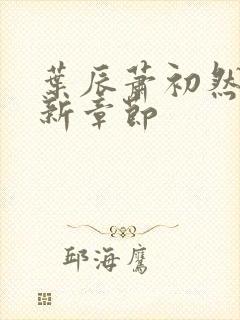 葉辰蕭初然
新章節
邱海鷹